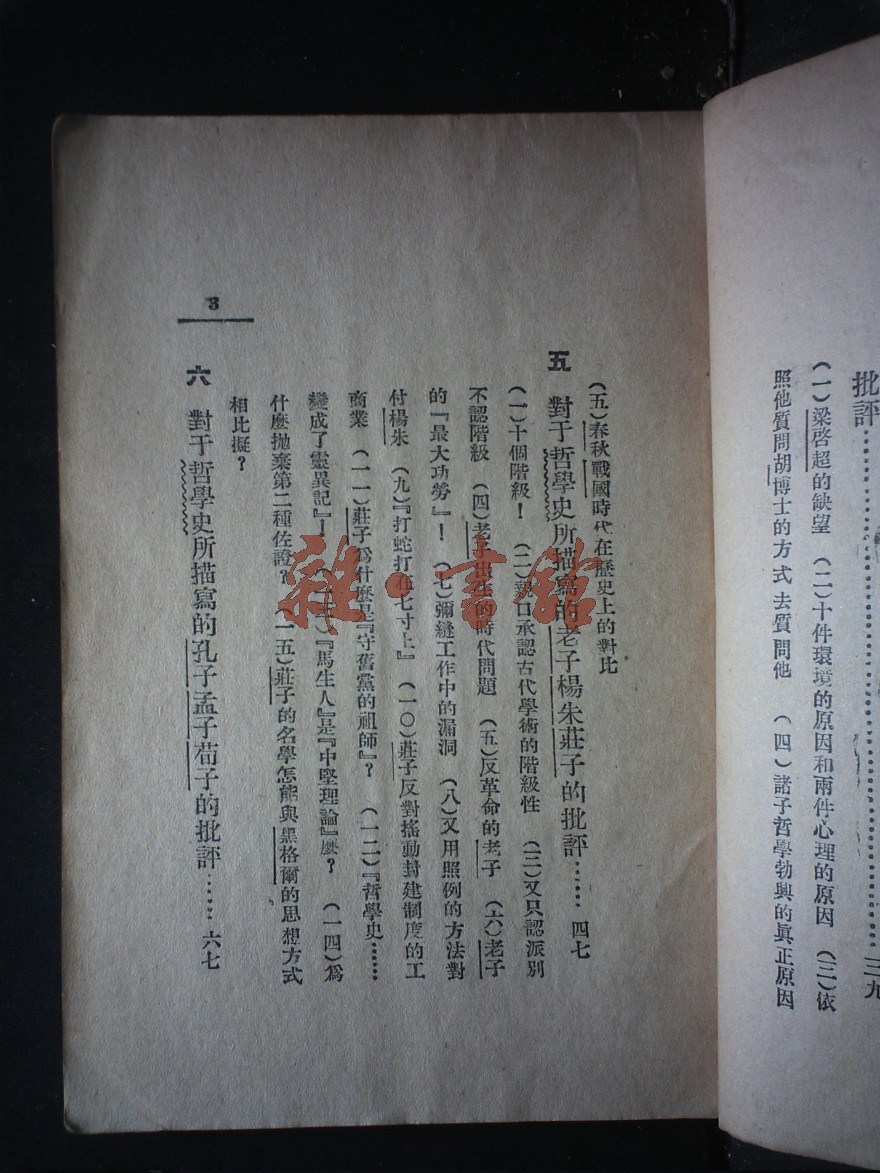 批評……………………………三九
(一)梁啓超的缺望 (二)十件環境的原因和兩件心理的原因 (三)依
照他質問胡博士的方式去質問他 (四)諸子哲學勃興的眞正原因
(五)春秋戰國時代在歷史上的對比
五 對于哲學史所描寫的老子楊朱莊子的批評……四七
(一)十個階級! (二)親口承認古代學術的階級性 (三)又只認派別
不認階級 (四)老子出生的時代問題 (五)反革命的老子 (六)老子
的『最大功勞』! (七)彌縫工作中的漏洞 (八)又用照例的方法對
付楊朱 (九)『打蛇打在七寸上』 (一〇)莊子反對搖動封建制度的工
商業 (一一)莊子爲什麽是『守舊黨的祖師』? (一二)『哲學史……
變成了靈異記』! (一三)『馬生人』是『中堅理論』麽? (一四)爲
什麽抛棄第二種佐證? (一五)莊子的名學怎能與黑格爾的思想方式
相比擬?
六 對于哲學史所描寫的孔子孟子荀子的批評……六七
3
雜·書館